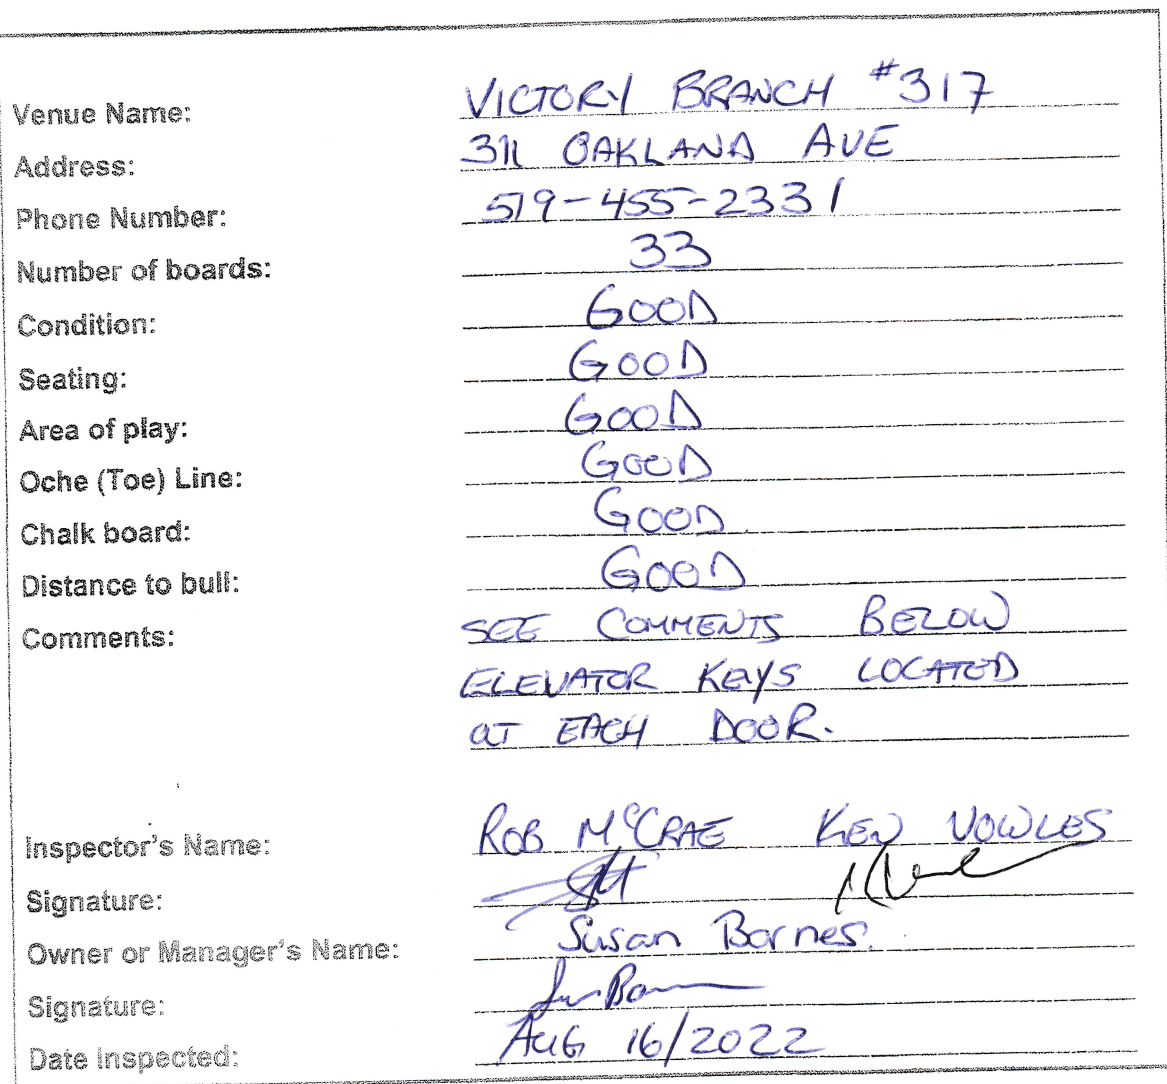 Venue Name: VICTORY BRANCH #317
Address: 311 OAKLAND AVE
Phone Number: 519-455-2331
Number of boards: 33
Condition: GOOD
Seating: GOOD
Area of play: GOOD
Oche (Toe) Line: GOOD
Chalk board: GOOD
Distance to bull: GOOD
Comments: SEE COMMENTS BELOW
ELEVATOR KEYS LOCATED
AT EACH DOOR.
Inspector's Name: ROB McCRAE KEN VOWLES
Signature:
Owner or Manager's Name: Susan Barnes.
Signature:
Date Inspected: AUG 16/2022